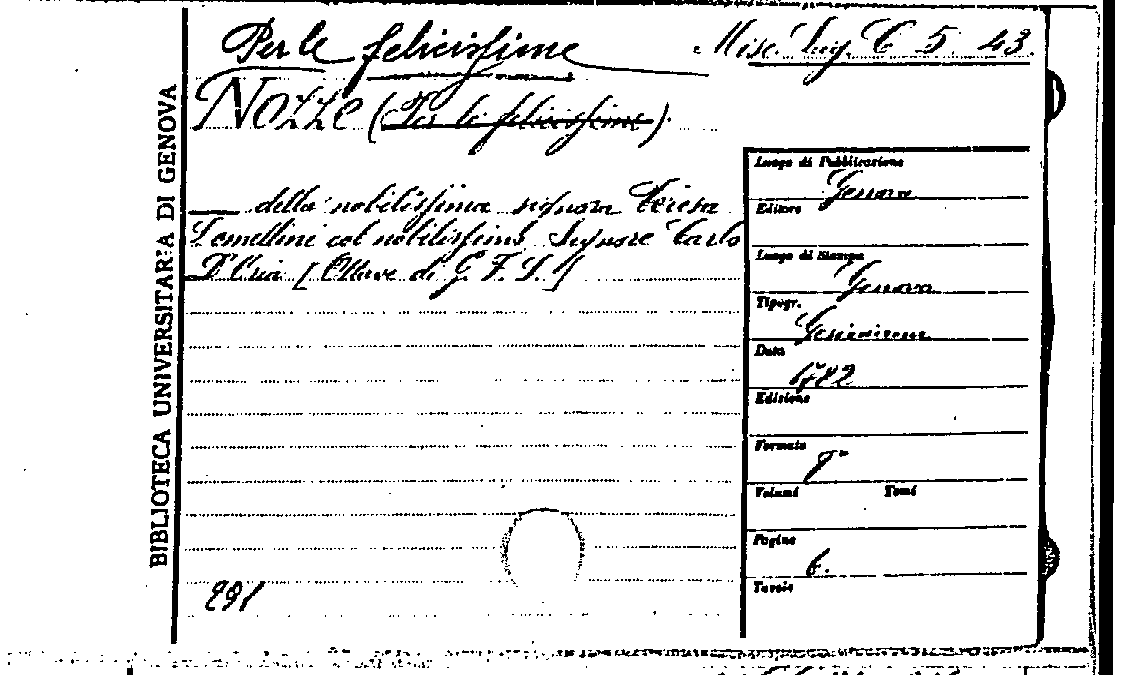 Per le felicissime
Misc. Lig. C 5. 43.
NOZZE (Per le felicissime).
della nobilissima signora Teresa
Lomellini col nobilissimo Signore Carlo
D'Oria [Ottave di G. F. S.]
291
BIBLIOTECA UNIVERSITARIA DI GENOVA
Luogo di Pubblicazione
Genova
Editore
Luogo di Stampa
Genova
Tipogr.
Data
1782
Edizione
Formato
8°
Volumi Tomi
Pagine
6.
Tavole